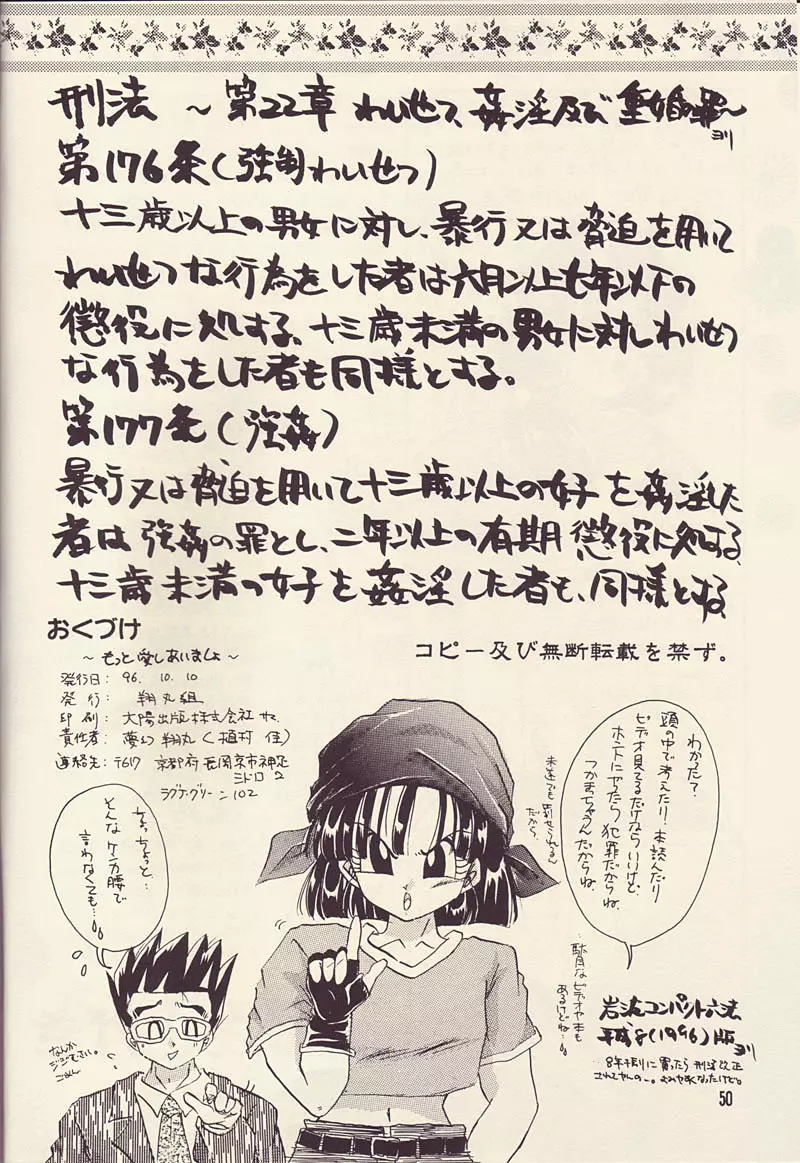 刑法 〜第22章 わいせつ、姦淫及び重婚の罪〜
ヨリ
第176条(強制わいせつ)
十三歳以上の男女に対し、暴行又は脅迫を用いて
わいせつな行為をした者は六月以上七年以下の
懲役に処する、十三歳未満の男女に対しわいせつ
な行為をした者も同様とする。
第177条(強姦)
暴行又は脅迫を用いて十三歳以上の女子を姦淫した
者は強姦の罪とし、二年以上の有期懲役に処する、
十三歳未満の女子を姦淫した者も、同様とする
おくづけ
〜もっと愛しあいましょ〜
発行日: 96. 10. 10
発行: 翔丸組
印刷: 大陽出版株式会社サマ
責任者: 夢幻翔丸(植村 佳)
連絡先: 〒617 京都府長岡京市神足
ミドロ2
ラグナ・グリーン102
コピー及び無断転載を禁ず。
わかった?
頭の中で考えたり、本読んだり
ビデオ見てるだけならいいけど、
ホントにやったら犯罪だからね、
つかまっちゃうんだからね。
未遂でも罰せられるん
だから。
…駄目なビデオや本も
あるけどね…
ちょっちょっと…
そんなケンカ腰で
言わなくても…
なんか
ジジでさい。
ごめん
岩波コンパクト六法
平成8(1996)版
ヨリ
8年度
50